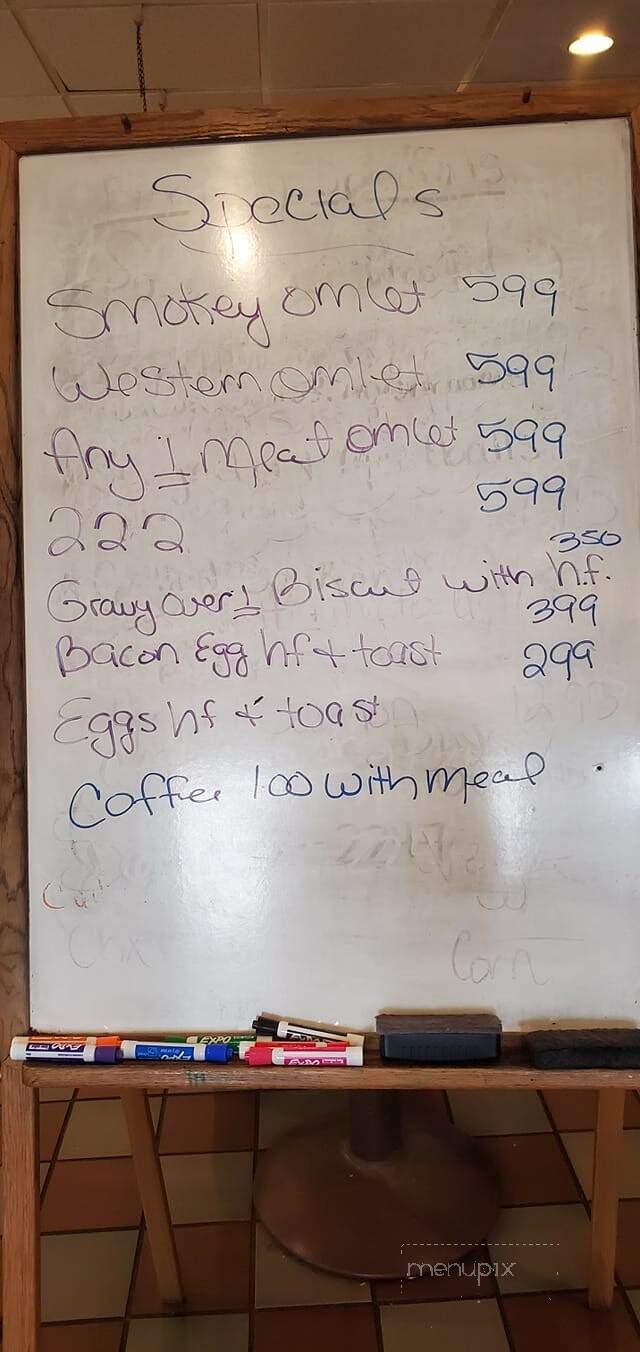 Specials
Smokey omlet 599
Western omlet 599
Any 1 Meat omlet 599
222 599
Gravy over 1 Biscut with h.f. 350
Bacon Egg hf + toast 399
Eggs hf + toast 299
Coffee 1.00 with meal
Corn
EXPO
EXPO
EXPO
EXPO
menupix